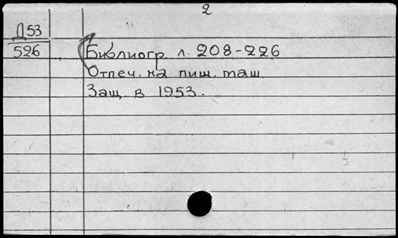 2
Д53
526
Библиогр. л. 208-226
Отпеч. на пиш. маш.
Защ. в 1953.